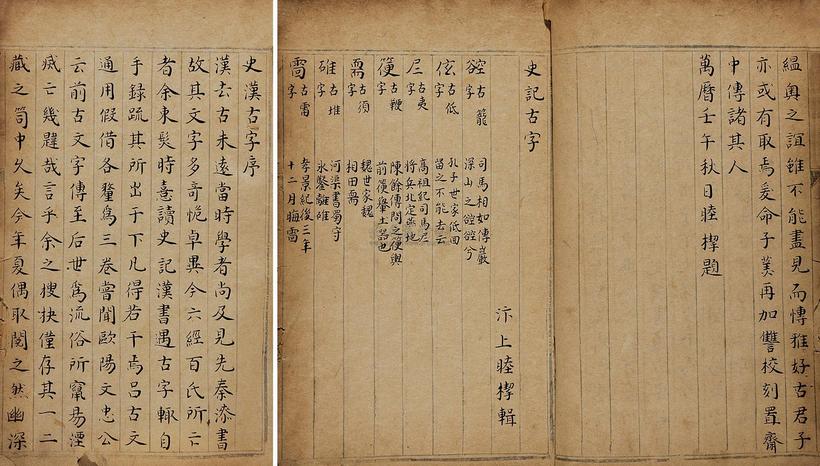 史漢古字序
漢去古未遠當時學者尚及見先秦漆書
故其文字多奇恠卓異今六經百氏所亡
者余束髮時憙讀史記漢書遇古字輒自
手錄疏其所出于下凡得若干焉吕古文
通用假借各釐爲三卷嘗聞歐陽文忠公
云前古文字傳至后世爲流俗所竄易湮
烕亡幾韙哉言乎余之搜抉僅存其一二
藏之笥中久矣今年夏偶取閱之然幽深
緼奥之誼雖不能盡見而博雅好古君子
亦或有取焉爰命子再加讐校刻置齋
中傳諸其人
萬曆壬午秋日睦㮮題
史記古字
汴上睦㮮輯
谾古籠字 司馬相如傳巖深山之谾谾兮
伭古低字 孔子世家低回留之不能去云
𡰥古夷字 高祖紀司馬𡰥將兵北定楚地
古鞭字 陳餘傳問之箯輿前箯舉土器也
古須字 魏世家魏相田需
碓古堆字 河渠書蜀守冰鑿離碓
古雷字 孝景紀後三年十二月晦